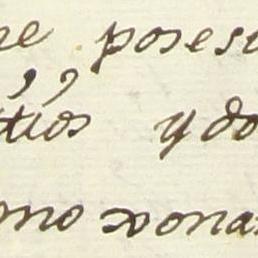 re poses
ttios y do
omo xona